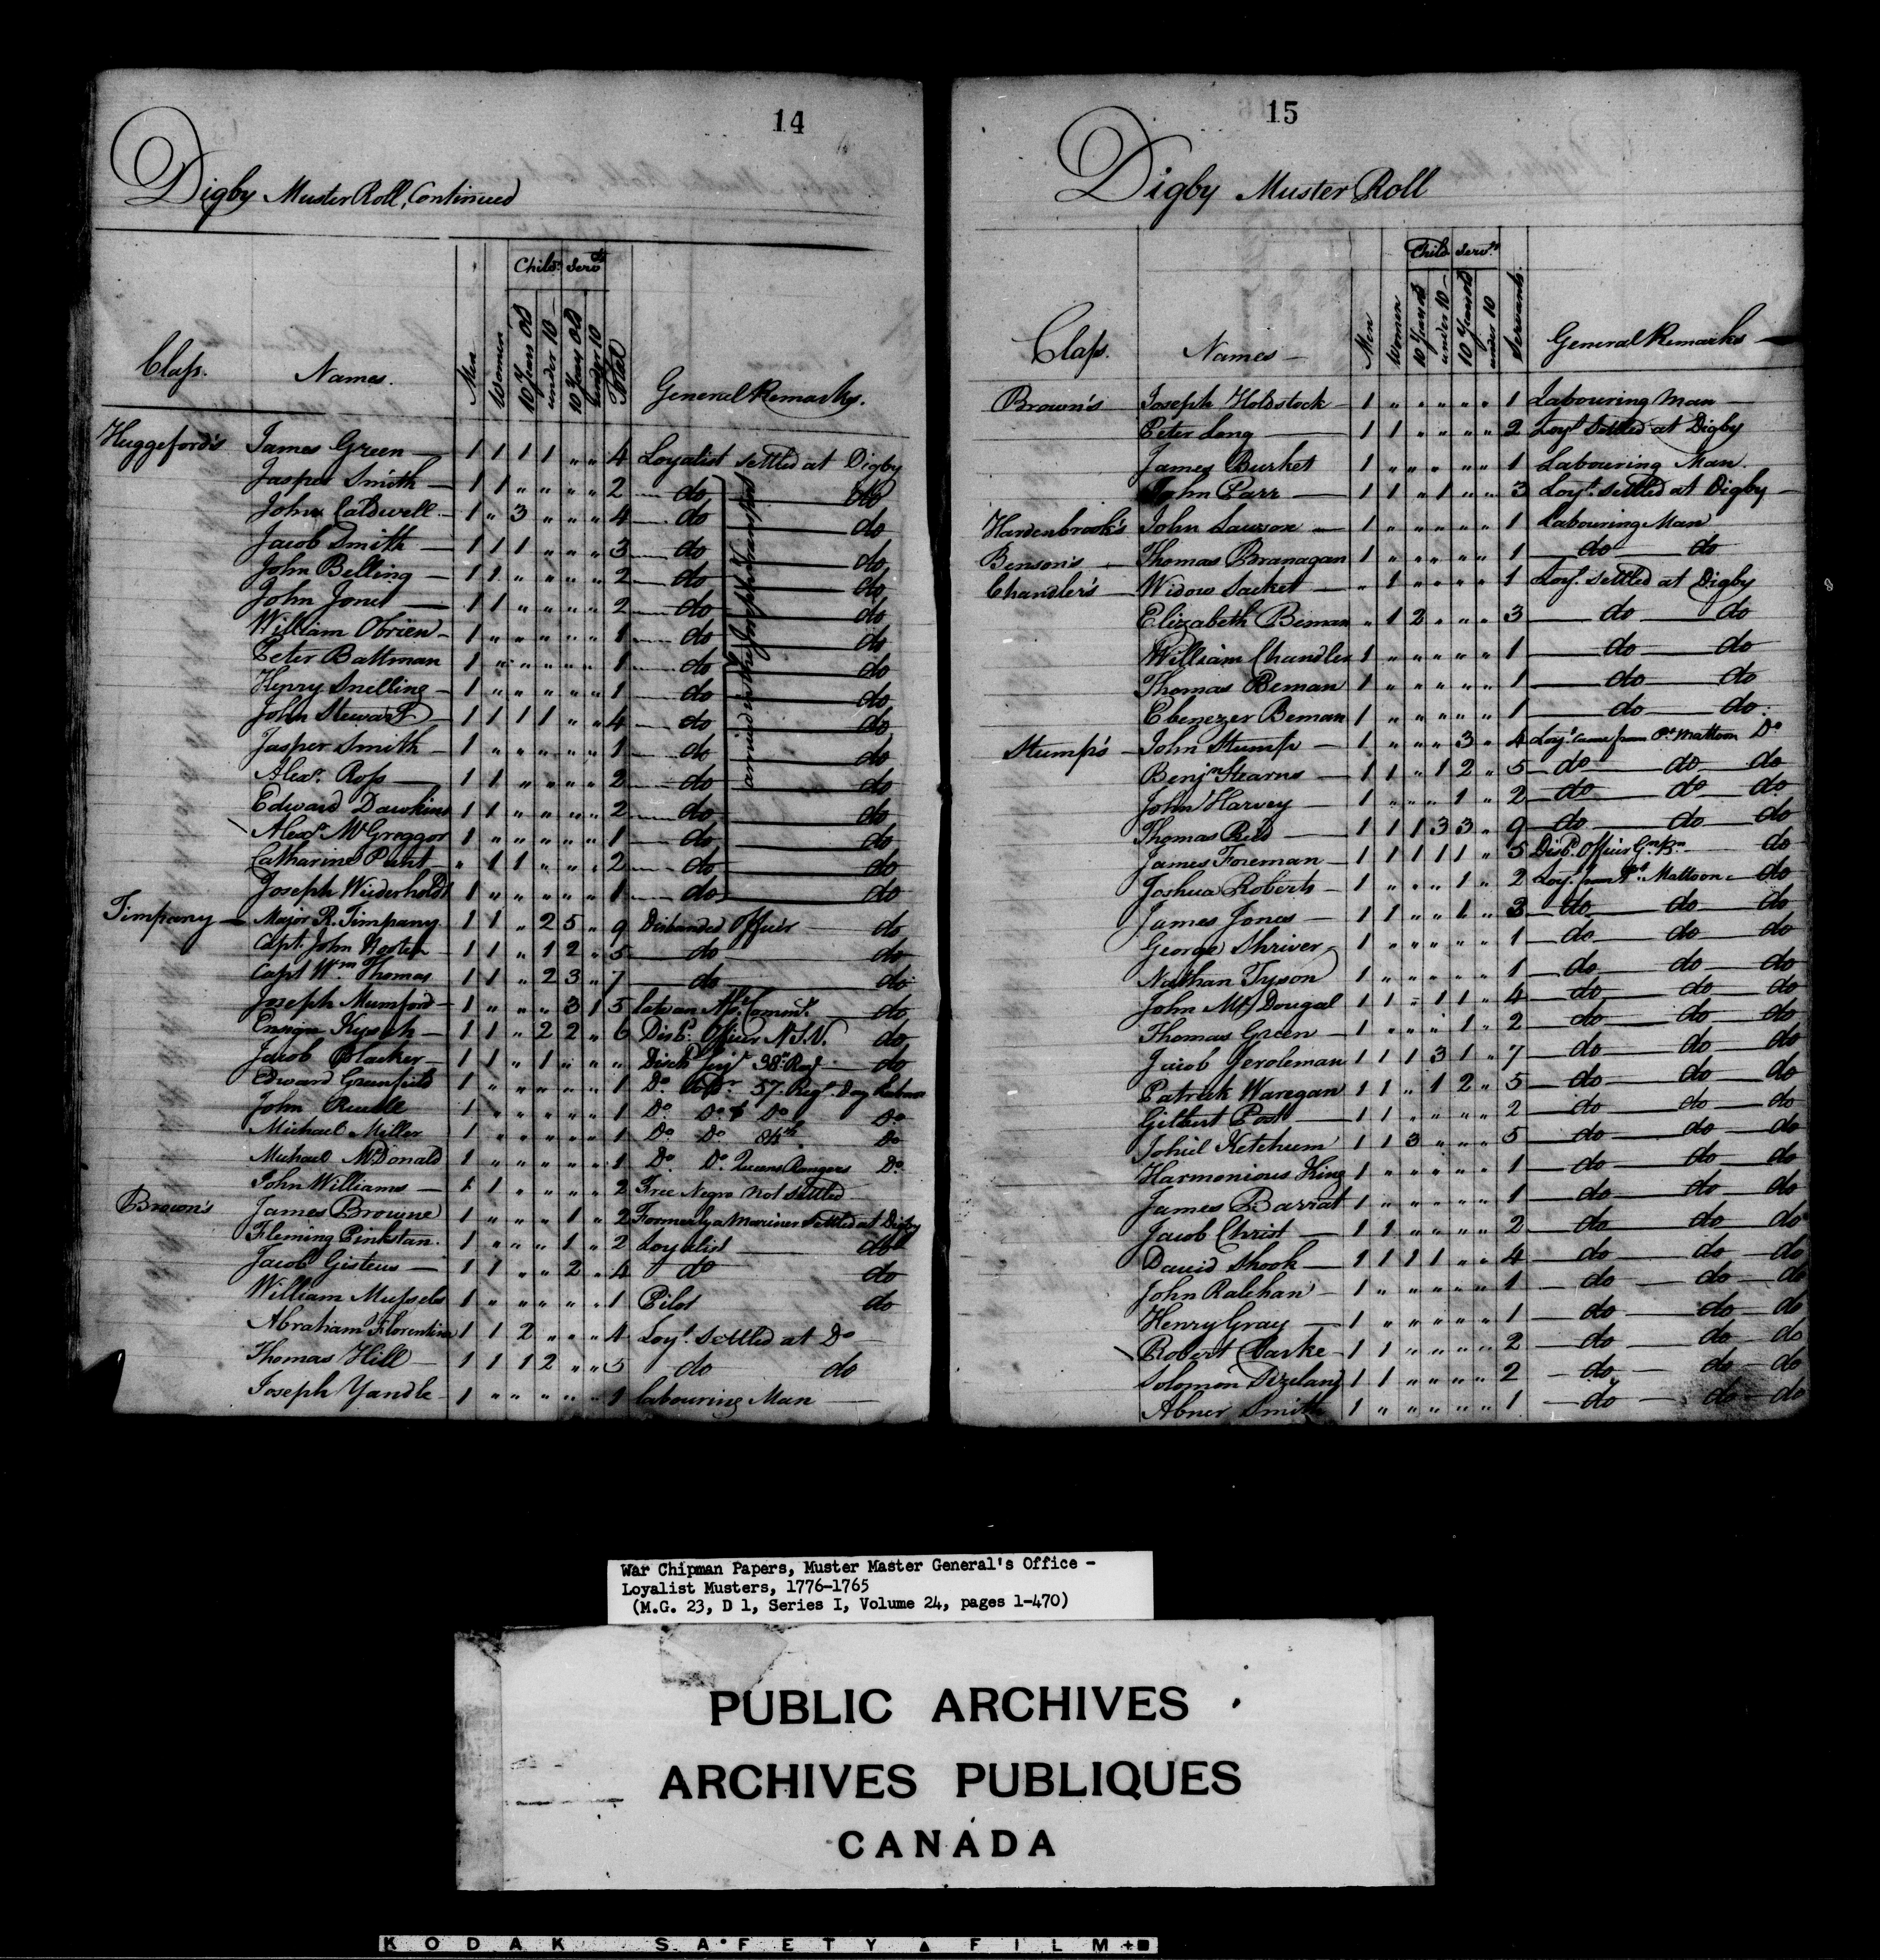 14
Digby Muster Roll, Continued
Class. Names. Men Women Child.n 10 Years Old under 10 Serv.ts 10 Years Old under 10 Total General Remarks.
Huggeford's James Green 1 1 1 1 " " 4 Loyalist settled at Digby
Jasper Smith 1 1 " " " " 2 do do
John Caldwell 1 " 3 " " " 4 do do
Jacob Smith 1 1 1 " " " 3 do do
John Belling 1 1 " " " " 2 do do
John Jones 1 1 " " " " 2 do do
William Obrien 1 " " " " " 1 do do
Peter Battman 1 " " " " " 1 do do
Henry Snelling 1 " " " " " 1 do do
John Stewart 1 1 1 1 " " 4 do do
Jasper Smith 1 " " " " " 1 do do
Alexr. Ross 1 1 " " " " 2 do do
Edward Dawkins 1 1 " " " " 2 do do
Alexr. McGreggor 1 " " " " " 1 do do
Catharine Pent " 1 1 " " " 2 do do
Joseph Wiederholdt 1 " " " " " 1 do do
arrived in the Transport
Timpany Major R. Timpany 1 1 " 2 5 " 9 Disbanded Officer do
Capt. John 1 1 " 1 2 " 5 do do
Capt Wm Thomas 1 1 " 2 3 " 7 do do
Joseph Mumford 1 " " " 3 1 5 late an do
Ensign 1 1 " 2 2 " 6 Disbd. Officer N.J.V. do
Jacob Blacker 1 1 " 1 " " " Disch 38th Reg do
Edward Greenfield 1 " " " " " 1 Do 57. Regt. Day Labour
John 1 " " " " " 1 Do Do Do Do
Michael Miller 1 " " " " " 1 Do Do Do
Michael McDonald 1 " " " " " 1 Do. Do. Queens Rangers Do.
John Williams 1 1 " " " " 2 Free Negro not settled
Brown's James Browne 1 " " " 1 " 2 Formerly a Mariner settled at Digby
Fleming Pinkstan 1 " " " 1 " 2 Loyalist do
Jacob Gisteus 1 1 " " 2 " 4 do do
William Mussels 1 " " " " " 1 Pilot do
Abraham Florentine 1 1 2 " " " 4 Loyt. settled at Do
Thomas Hill 1 1 1 2 " " 5 do do
Joseph Yandle 1 " " " " " 1 labouring Man
15
Digby Muster Roll
Class. Names Men Women Child 10 Years old under 10 Servts. 10 Years old under 10 Servants. General Remarks
Brown's Joseph Holdstock 1 " " " " " 1 Labouring Man
Peter Long 1 1 " " " " 2 Loyt. Settled at Digby
James Burket 1 " " " " " 1 Labouring Man.
John Parr 1 1 " 1 " " 3 Loyt. settled at Digby
Hardenbrook's John Lawson 1 " " " " " 1 Labouring Man
Benson's Thomas Branagan 1 " " " " " 1 do do
Chandler's Widow Sacket " 1 " " " " 1 Loyt. settled at Digby
Elizabeth Beman " 1 2 " " " 3 do do
William Chandler 1 " " " " " 1 do do
Thomas Beman 1 " " " " " 1 do do
Ebenezer Beman 1 " " " " " 1 do do
Stump's John Stump 1 " " " 3 " 4 Loyt. came from Pt. Mattoon Do
Benjn Stearns 1 1 " 1 2 " 5 do do do
John Harvey 1 " " " 1 " 2 do do do
Thomas Reed 1 1 1 3 3 " 9 do do do
James Foreman 1 1 1 1 1 " 5 Disbd. Officer do
Joshua Roberts 1 " " " 1 " 2 Loyt. from Pt. Mattoon do
James Jones 1 1 " " 1 " 3 do do do
George Shriver 1 " " " " " 1 do do do
Nathan Tyson 1 " " " " " 1 do do do
John McDougal 1 1 " 1 1 " 4 do do do
Thomas Green 1 " " " 1 " 2 do do do
Jacob Jeroleman 1 1 1 3 1 " 7 do do do
Patrick Waregan 1 1 " 1 2 " 5 do do do
Gilbert Post 1 1 " " " " 2 do do do
Johiel Ketchum 1 1 3 " " " 5 do do do
Harmonious King 1 " " " " " 1 do do do
James Barrat 1 " " " " " 1 do do do
Jacob Christ 1 1 " " " " 2 do do do
David Shook 1 1 1 1 " " 4 do do do
John Ralehan 1 " " " " " 1 do do do
Henry Gray 1 " " " " " 1 do do do
Robert Clarke 1 1 " " " " 2 do do do
Solomon 1 1 " " " " 2 do do do
Abner Smith 1 " " " " " 1 do do do
War Chipman Papers, Muster Master General's Office -
Loyalist Musters, 1776-1765
(M.G. 23, D 1, Series I, Volume 24, pages 1-470)
PUBLIC ARCHIVES
ARCHIVES PUBLIQUES
CANADA
KODAK SAFETY FILM